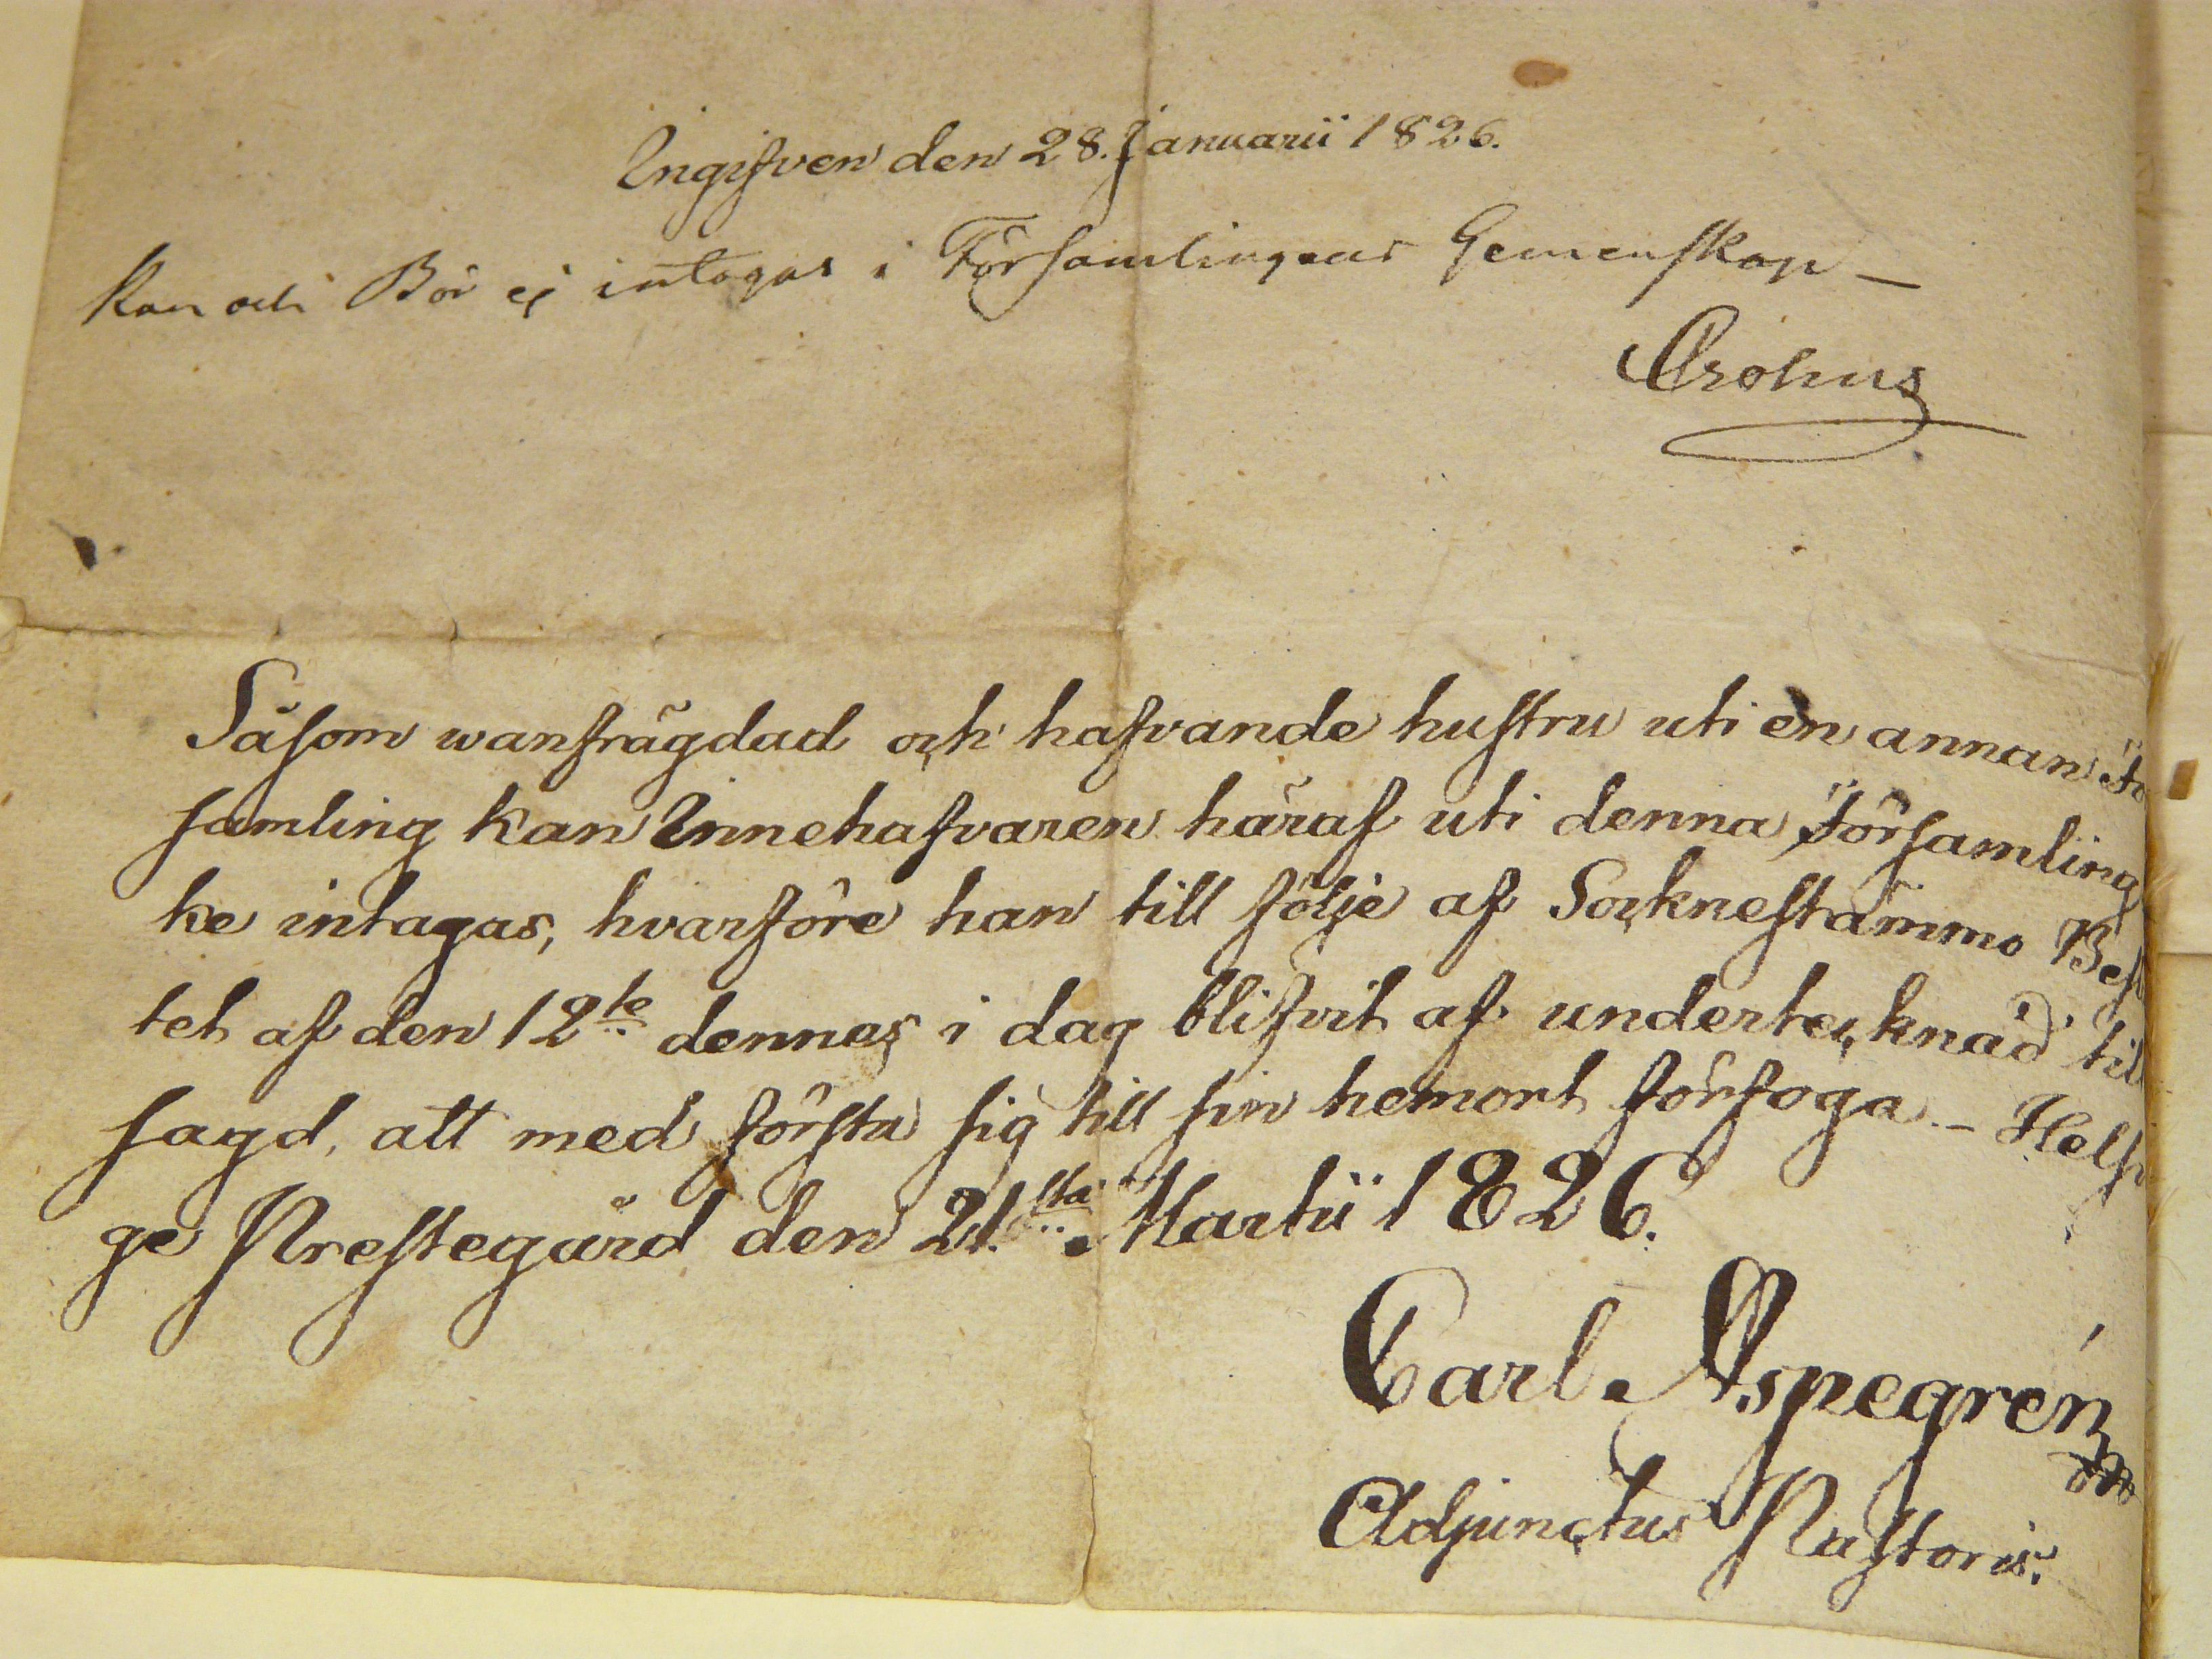 Ingifven den 28. Januarii 1826.
Kan och Bör ej intagas i Församlingens Gemenskap —
Såsom wanfrägdad och hafvande hustru uti en annan För
samling kan Innehafvaren häraf uti denna Församling
ke intagas, hvarföre han till följe af Socknestämmo Besl
tet af den 12te dennes i dag blifvit af undertecknad til
sagd, att med första sig till sin hemort förfoga. – Helsi
ge Prestegård den 21sta Martii 1826.
Carl Aspegrén
Adjunctus Pastoris.